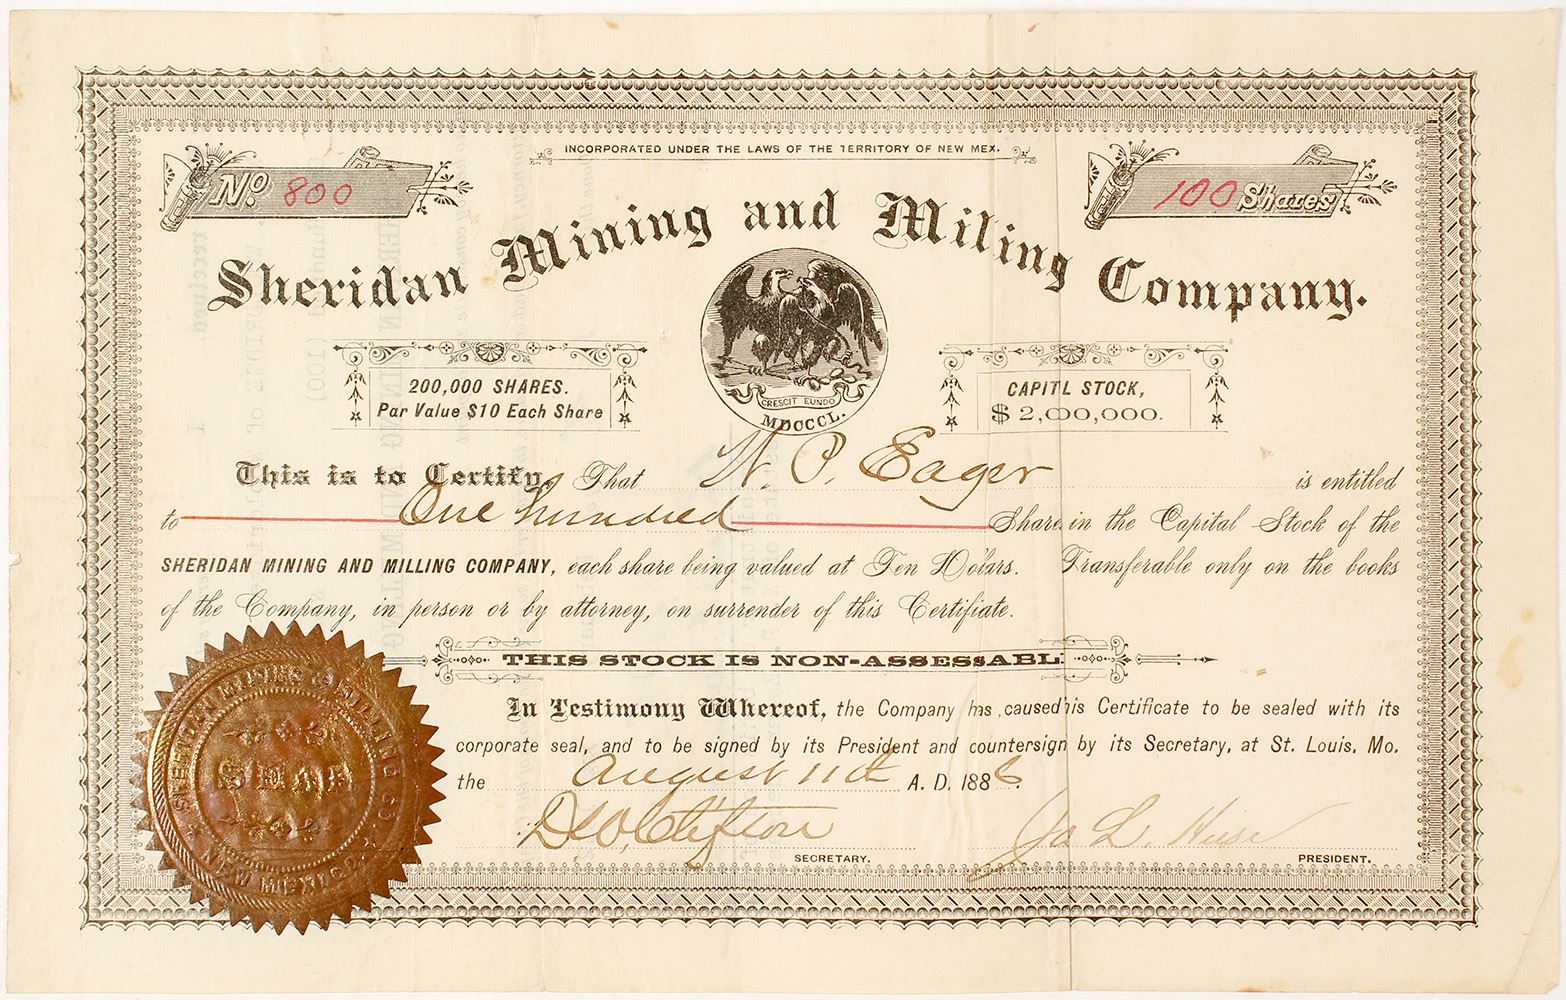 INCORPORATED UNDER THE LAWS OF THE TERRITORY OF NEW MEX.
No. 800
100 Shares
Sheridan Mining and Milling Company.
200,000 SHARES.
Par Value $10 Each Share
CRESCIT EUNDO
MDCCCL.
CAPIT L STOCK,
$ 2,000,000.
This is to Certify, That N. P. Eager is entitled
to One hundred Share in the Capital Stock of the
SHERIDAN MINING AND MILLING COMPANY, each share being valued at Ten Dollars. Transferable only on the books
of the Company, in person or by attorney, on surrender of this Certificate.
THIS STOCK IS NON-ASSESSABL
In Testimony Whereof, the Company has caused his Certificate to be sealed with its
corporate seal, and to be signed by its President and countersign by its Secretary, at St. Louis, Mo.
the August 11th A. D. 1886.
SECRETARY.
PRESIDENT.
SHERIDAN MINING & MILLING CO.
SEAL
NEW MEXICO